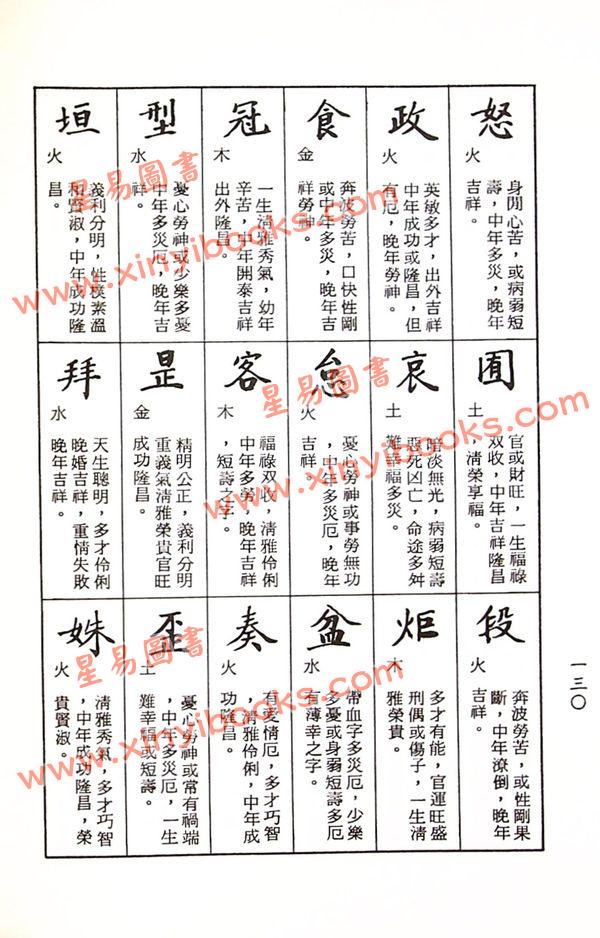 怒
火
身閒心苦，或病弱短
壽，中年多災，晚年
吉祥。
政
火
英敏多才，出外吉祥
中年成功或隆昌，但
有厄，晚年勞神。
食
金
奔波勞苦，口快性剛
或中年多災，晚年吉
祥勞神。
冠
木
一生清雅秀氣，幼年
辛苦，中年開泰吉祥
出外隆昌。
型
水
憂心勞神或少樂多憂
中年多災厄，晚年吉
祥。
垣
火
義利分明，性樸素溫
和賢淑，中年成功隆
昌。
囿
土
官或財旺，一生福祿
双收，中年吉祥隆昌
，清榮享福。
哀
土
暗淡無光，病弱短壽
惡死凶亡，命途多舛
難幸福多災。
怠
火
憂心勞神或事勞無功
，中年多災厄，晚年
吉祥。
客
木
福祿双收，清雅伶俐
中年多勞，晚年吉祥
，短壽之字。
昰
金
精明公正，義利分明
重義氣清雅榮貴官旺
成功隆昌。
拜
水
天生聰明，多才伶俐
晚婚吉祥，重情失敗
晚年吉祥。
段
火
奔波勞苦，或性剛果
斷，中年潦倒，晚年
吉祥。
炬
木
多才有能，官運旺盛
刑偶或傷子，一生清
雅榮貴。
盆
水
帶血字多災厄，少樂
多憂或身弱短壽多厄
有薄幸之字。
奏
火
有愛情厄，多才巧智
，清雅伶俐，中年成
功隆昌。
歪
土
憂心勞神或常有禍端
，中年多災厄，一生
難幸福或短壽。
姝
火
清雅秀氣，多才巧智
，中年成功隆昌，榮
貴賢淑。
一三〇
星易圖書
www.xinyibooks.com
星易圖書
www.xinyibooks.com
星易圖書
www.xinyibooks.com